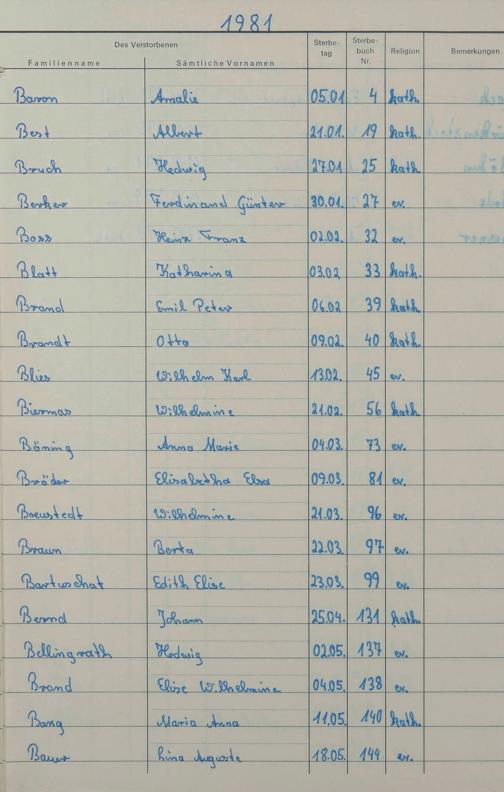 1981
Des Verstorbenen
Familienname Sämtliche Vornamen Sterbe-tag Sterbe-buch Nr. Religion Bemerkungen
Baron Amalie 05.01 4 kath.
Best Albert 21.01. 19 kath.
Bruch Hedwig 27.01 25 kath
Berker Ferdinand Günter 30.01. 27 ev.
Boss Heinz Franz 02.02. 32 ev.
Blatt Katharina 03.02 33 kath.
Brand Emil Peter 06.02 39 kath.
Brandt Otto 09.02. 40 kath.
Blies Wilhelm Karl 13.02. 45 ev.
Biermas Wilhelmine 21.02. 56 kath
Böning Anna Marie 04.03. 73 ev.
Bröder Elisabetha Elsa 09.03. 81 ev.
Breustedt Wilhelmine 21.03. 96 ev.
Braun Berta 22.03. 97 ev.
Bartuschat Edith Elise 23.03. 99 ev.
Bernd Johann 25.04. 131 kath.
Bellingrath Hedwig 02.05. 137 ev.
Brand Elise Wilhelmine 04.05. 138 ev.
Bang Maria Anna 11.05. 140 kath.
Bauer Lina Auguste 18.05. 144 ev.